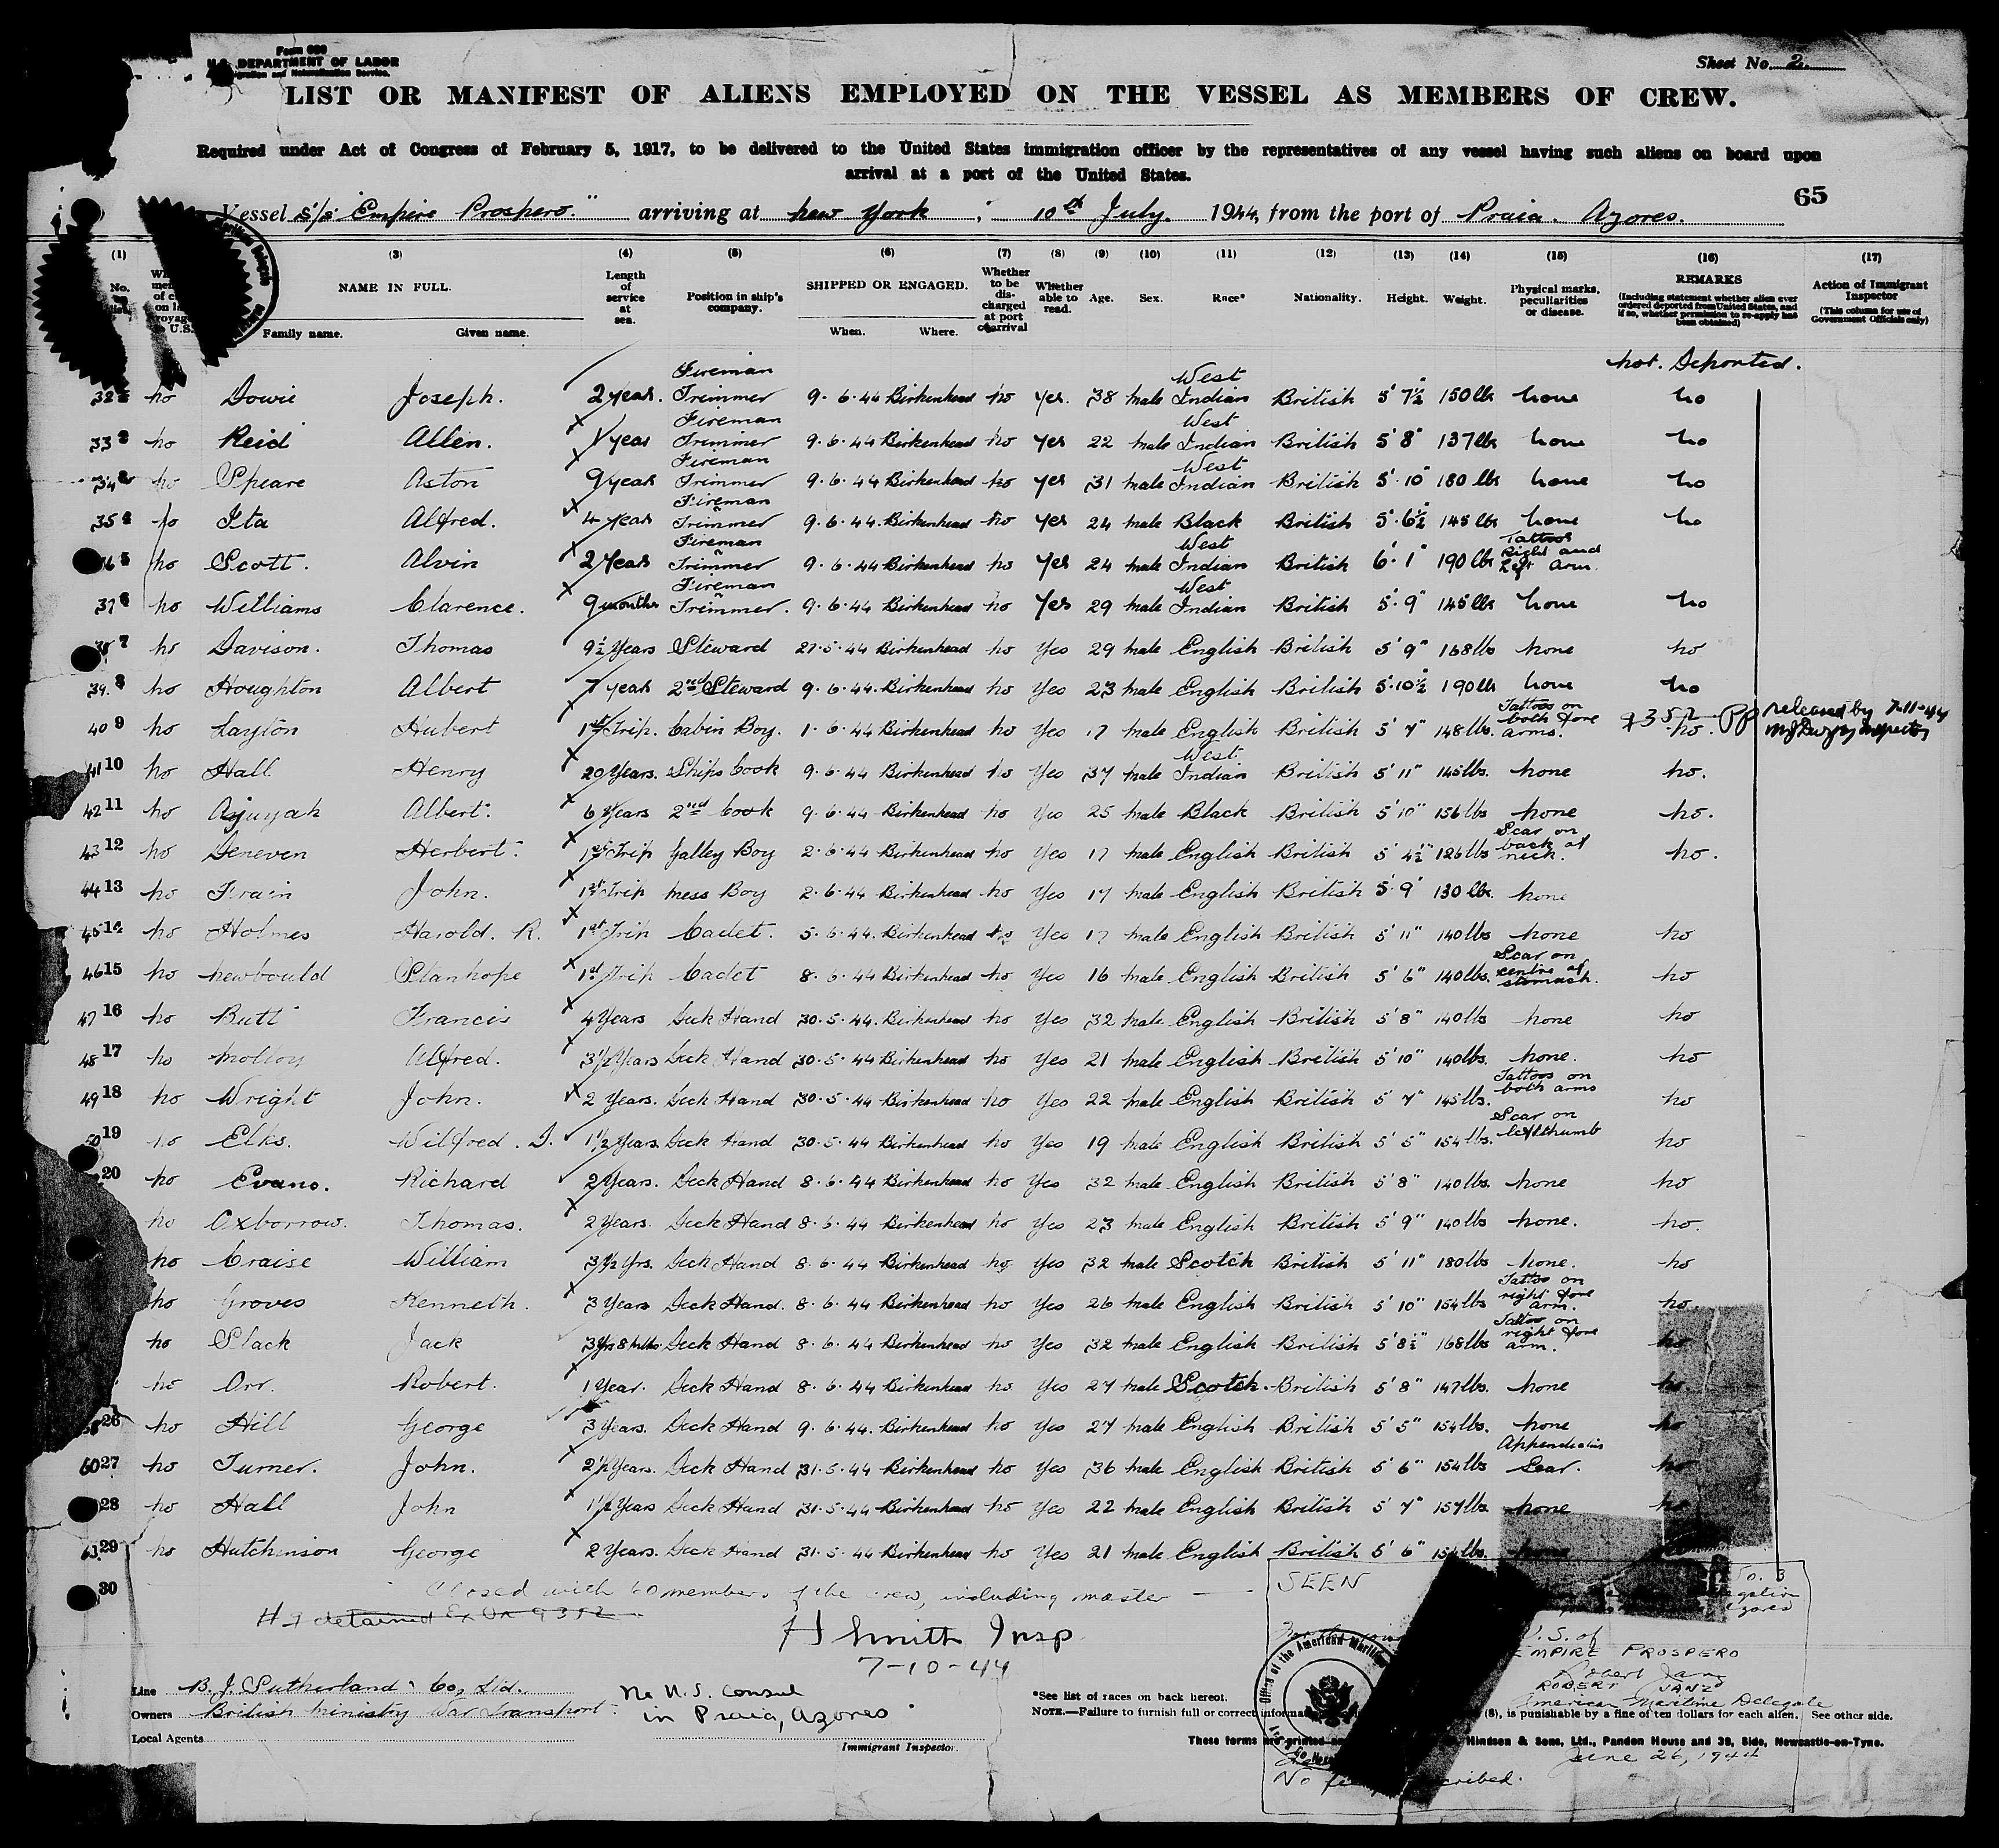 Form 680
U.S. DEPARTMENT OF LABOR
Immigration and Naturalization Service.
Sheet No. 2.
LIST OR MANIFEST OF ALIENS EMPLOYED ON THE VESSEL AS MEMBERS OF CREW.
Required under Act of Congress of February 5, 1917, to be delivered to the United States immigration officer by the representatives of any vessel having such aliens on board upon
arrival at a port of the United States.
65
Vessel s/s "Empire Prospero." arriving at New York, 10th July. 1944, from the port of Praia. Azores.
(1) (3) (4) (5) (6) (7) (8) (9) (10) (11) (12) (13) (14) (15) (16) (17)
No. NAME IN FULL. Family name. Given name. Length of service at sea. Position in ship's company. SHIPPED OR ENGAGED. When. Where. Whether to be discharged at port of arrival Whether able to read. Age. Sex. Race* Nationality. Height. Weight. Physical marks, peculiarities or disease. REMARKS (Including statement whether alien ever ordered deported from United States, and if so, whether permission to re-apply has been obtained) Action of Immigrant Inspector (This column for use of Government Officials only)
Not. Deported.
32 No Dowie Joseph. 2 year. Fireman Trimmer 9.6.44 Birkenhead No Yes. 38 Male West Indian British 5' 7½" 150 lbs None No
33 2 No Reid Allen. 1 year Fireman Trimmer 9.6.44 Birkenhead No Yes 22 Male West Indian British 5' 8" 137 lbs None No
34 No Speare Aston 9 year Fireman Trimmer 9.6.44 Birkenhead No Yes 31 Male West Indian British 5' 10" 180 lbs None No
35 4 No Ita Alfred. 4 years Fireman Trimmer 9.6.44. Birkenhead No Yes 24 Male Black British 5' 6½" 145 lbs None No
36 5 No Scott. Alvin 2 Years Fireman Trimmer 9.6.44 Birkenhead No Yes 24 Male West Indian British 6' 1" 190 lbs Tattoos Right and Left Arm.
37 6 No Williams Clarence. 9 months Fireman Trimmer. 9.6.44 Birkenhead No Yes 29 Male West Indian British 5' 9" 145 lbs None No
38 7 No Davison. Thomas 9½ Years Steward 27.5.44 Birkenhead No Yes 29 Male English British 5' 9" 168 lbs None No
39. 8 No Houghton Albert 7 years 2nd Steward 9.6.44. Birkenhead No Yes 23 Male English British 5' 10½" 190 lbs None No
40 9 No Layton Hubert 1st Trip. Cabin Boy. 1.6.44 Birkenhead No Yes 17 Male English British 5' 7" 148 lbs. Tattoos on both fore arms. 9352 No. PP released by 7-11-44 Inspector
41 10 No Hall Henry 20 Years. Ships Cook 9.6.44 Birkenhead No Yes 37 Male West Indian British 5' 11" 145 lbs. None No.
42 11 No Ajuyah Albert. 6 Years 2nd Cook 9.6.44 Birkenhead No Yes 25 Male Black British 5' 10" 156 lbs None No.
43 12 No Deneven Herbert. 1st Trip Galley Boy 2.6.44 Birkenhead No Yes 17 Male English British 5' 4½" 126 lbs Scar on back of neck. No.
44 13 No Frain John. 1st Trip Mess Boy 2.6.44 Birkenhead No Yes 17 Male English British 5' 9" 130 lbs. None
45 14 No Holmes Harold. R. 1st Trip Cadet. 5.6.44. Birkenhead No Yes 17 Male English British 5' 11" 140 lbs None No
46 15 No Newbould Stanhope 1st Trip Cadet 8.6.44 Birkenhead No Yes 16 Male English British 5' 6" 140 lbs. Scar on centre of stomach. No
47 16 No Butt Francis 4 Years Deck Hand 30.5.44. Birkenhead No Yes 32 Male English British 5' 8" 140 lbs None No
48 17 No Molloy Alfred. 3½ Years Deck Hand 30.5.44 Birkenhead No Yes 21 Male English British 5' 10" 140 lbs. None. No
49 18 No Wright John. 2 Years. Deck Hand 30.5.44 Birkenhead No Yes 22 Male English British 5' 7" 145 lbs. Tattoos on both arms No
50 19 No Elks. Wilfred. J. 1½ Years. Deck Hand 30.5.44 Birkenhead No Yes 19 Male English British 5' 5" 154 lbs. Scar on left thumb No
20 No Evans. Richard 2 Years. Deck Hand 8.6.44 Birkenhead No Yes 32 Male English British 5' 8" 140 lbs. None No
No Axborrow. Thomas. 2 Years. Deck Hand 8.6.44 Birkenhead No Yes 23 Male English British 5' 9" 140 lbs None. No.
No Craise William 3½ Yrs. Deck Hand 8.6.44 Birkenhead No Yes 32 Male Scotch British 5' 11" 180 lbs None. No
No Groves Kenneth. 3 Years Deck Hand. 8.6.44 Birkenhead No Yes 26 Male English British 5' 10" 154 lbs Tattoo on right fore arm. No.
No Slack Jack 3 Yrs 8 Mths Deck Hand 8.6.44 Birkenhead No Yes 32 Male English British 5' 8½" 168 lbs Tattoo on right fore arm. No
No Orr. Robert. 1 Year. Deck Hand 8.6.44 Birkenhead No Yes 27 Male Scotch. British 5' 8" 147 lbs. None No
26 No Hill George 3 Years. Deck Hand 9.6.44. Birkenhead No Yes 27 Male English British 5' 5" 154 lbs. None No
60 27 No Turner. John. 2½ Years. Deck Hand 31.5.44 Birkenhead No Yes 36 Male English British 5' 6" 154 lbs Appendicitis Scar. No
28 No Hall John 1½ Years Deck Hand 31.5.44 Birkenhead No Yes 22 Male English British 5' 7" 157 lbs. None No
29 No Hutchinson George 2 Years. Deck Hand 31.5.44 Birkenhead No Yes 21 Male English British 5' 6" 154 lbs. None
30
Closed with 60 members of the crew, including master
detained Ex Or 9352
H Smith Insp
7-10-44
SEEN
No. 3
U.S. of
EMPIRE PROSPERO
ROBERT JANZ
American Maritime Delegate
June 26, 1944
Office of the American Maritime
Line B. J. Sutherland & Co, Ltd.
Owners British Ministry War Transport.
Local Agents
No U.S. Consul
in Praia, Azores
Immigrant Inspector.
*See list of races on back hereof.
NOTE.—Failure to furnish full or correct (8), is punishable by a fine of ten dollars for each alien. See other side.
These forms are printed Hindson & Sons, Ltd., Pandon House and 39, Side, Newcastle-on-Tyne.
No